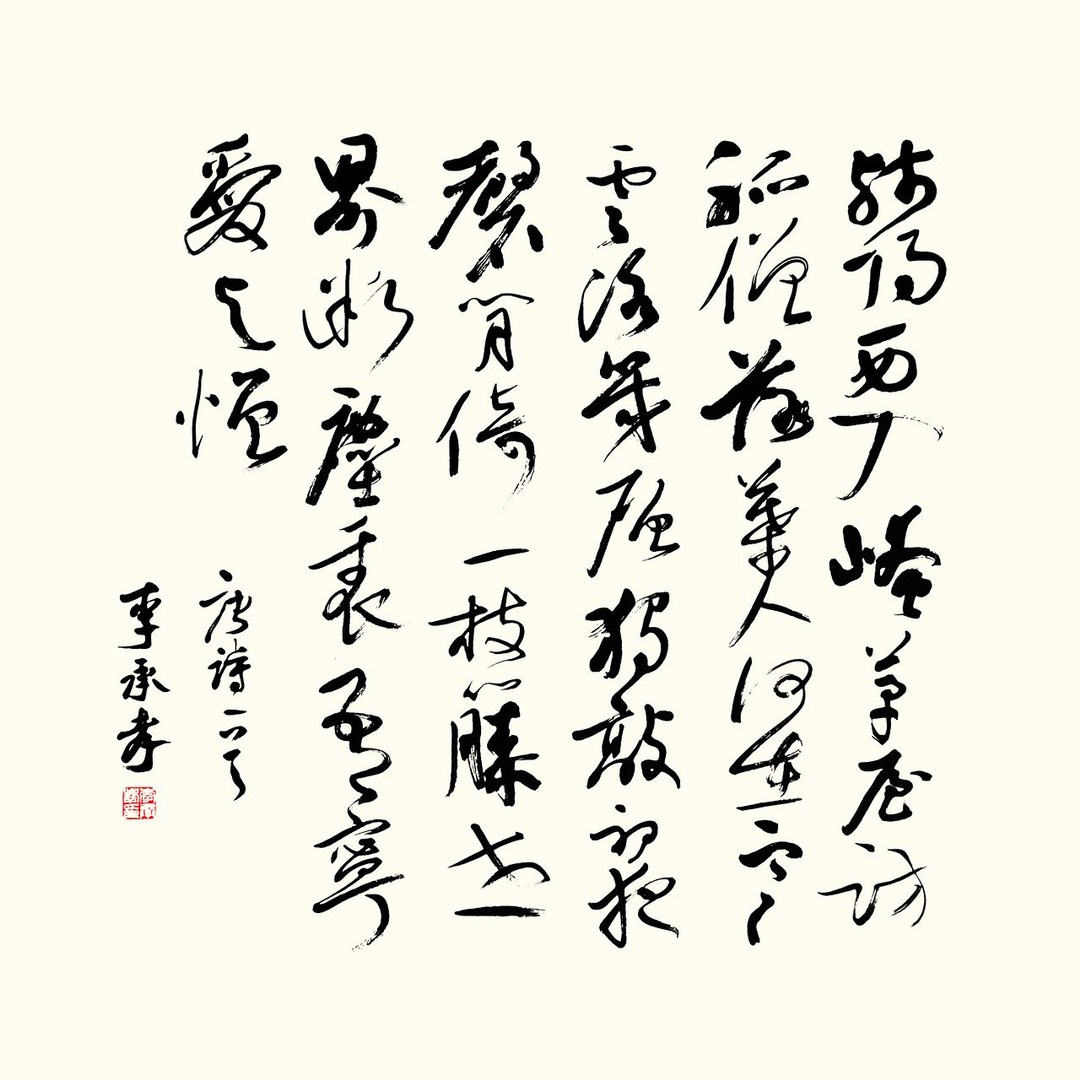 殘陽西入崦草屋訪
孤僧落葉人何在寒
雲路幾層獨敲初夜
磬閒倚一枝藤世
界微塵裏吾寧
愛與憎
唐詩一首
李承孝